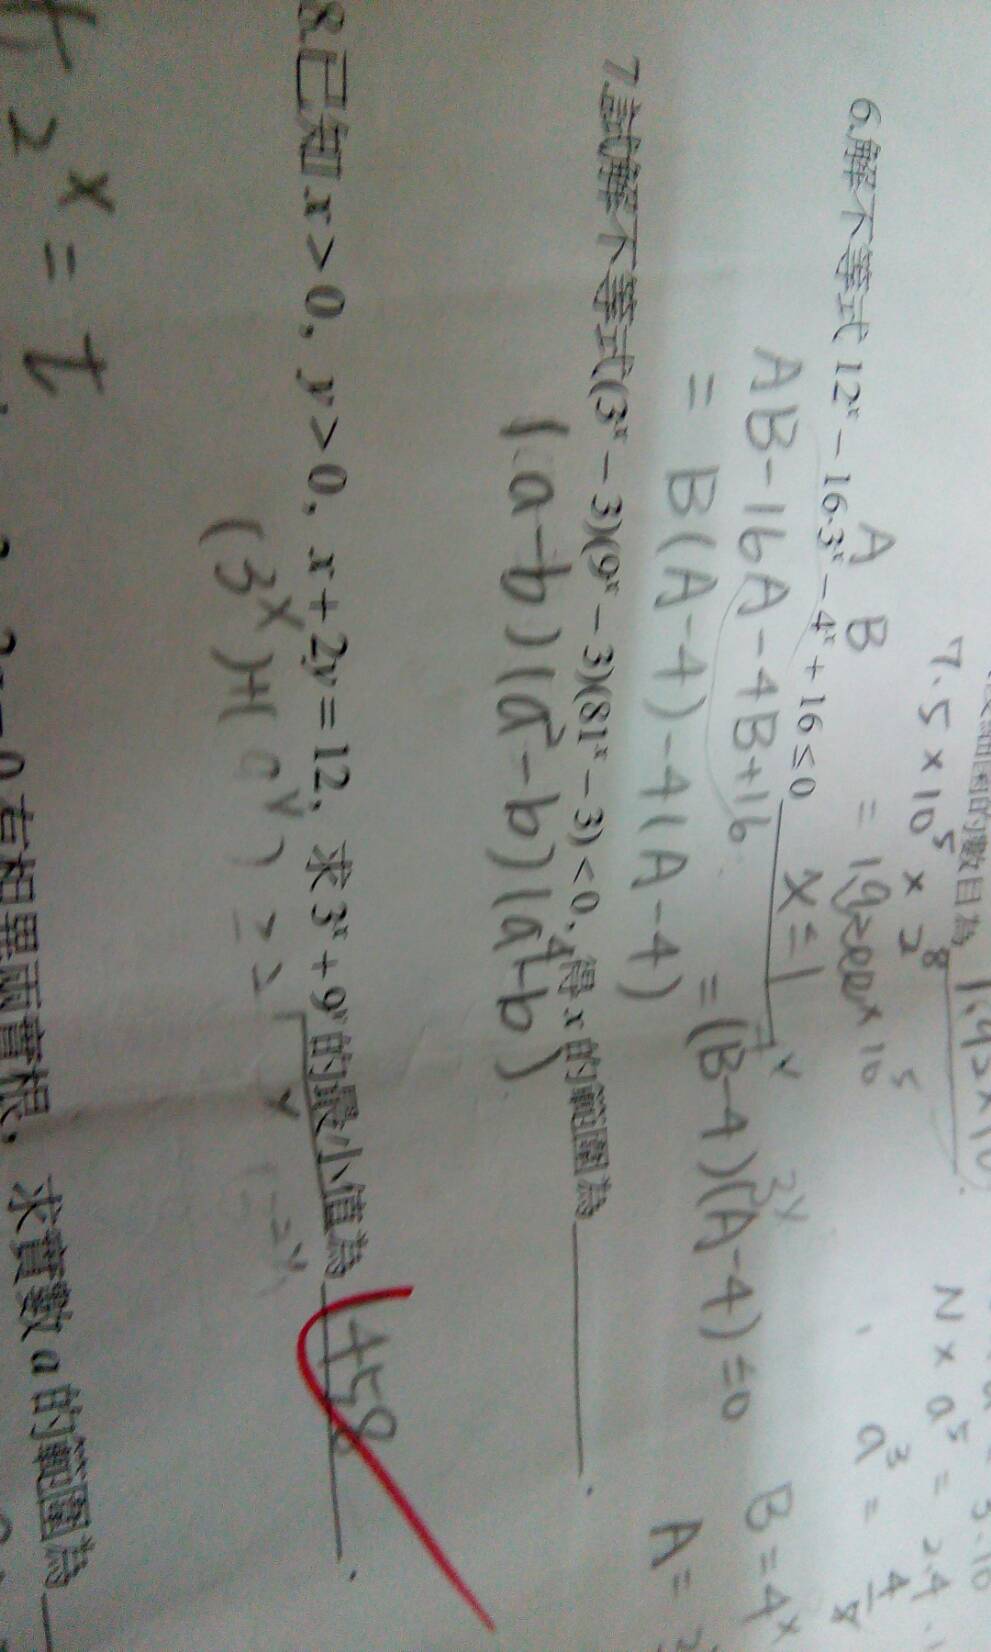 的數目為 1.92×10
7.5×10⁵×2⁸
N×a⁵=
a³=
6.解不等式 12ˣ－16·3ˣ－4ˣ＋16≤0 x=1
A B
AB-16A-4B+16
= B(A-4)-4(A-4)
=(B-4)(A-4)≤0
B=4ˣ
A=
7.試解不等式(3ˣ－3)(9ˣ－3)(81ˣ－3)<0，得 x 的範圍為
(a-b)(a²-b)(a⁴-b)
8.已知 x>0，y>0，x＋2y＝12，求 3ˣ＋9ʸ 的最小值為 1458
(3ˣ)+(9ʸ) ≥ 2
2ˣ=t
有相異兩實根，求實數 a 的範圍為